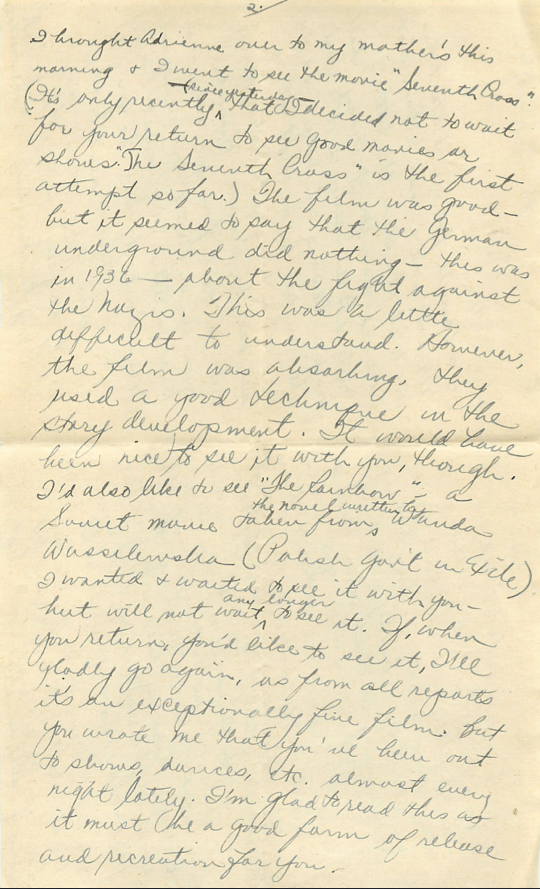 2.
I brought Adrienne over to my mother's this
morning & I went to see the movie "Seventh Cross".
(It's only recently (since yesterday) that I decided not to wait
for your return to see good movies or
shows. "The Seventh Cross" is the first
attempt so far.) The film was good –
but it seemed to say that the German
underground did nothing – this was
in 1936 — about the fight against
the Nazis. This was a little
difficult to understand. However,
the film was absorbing. They
used a good technique in the
story development. It would have
been nice to see it with you, though.
I'd also like to see "The Rainbow" – a
Soviet movie taken from the novel written by Wanda
Wassilewska (Polish Gov't in Exile)
I wanted & waited to see it with you –
but will not wait any longer to see it. If, when
you return, you'd like to see it, I'll
gladly go again, as from all reports
it's an exceptionally fine film. But
you wrote me that you've been out
to shows, dances, etc. almost every
night lately. I'm glad to read this as
it must be a good form of release
and recreation for you.